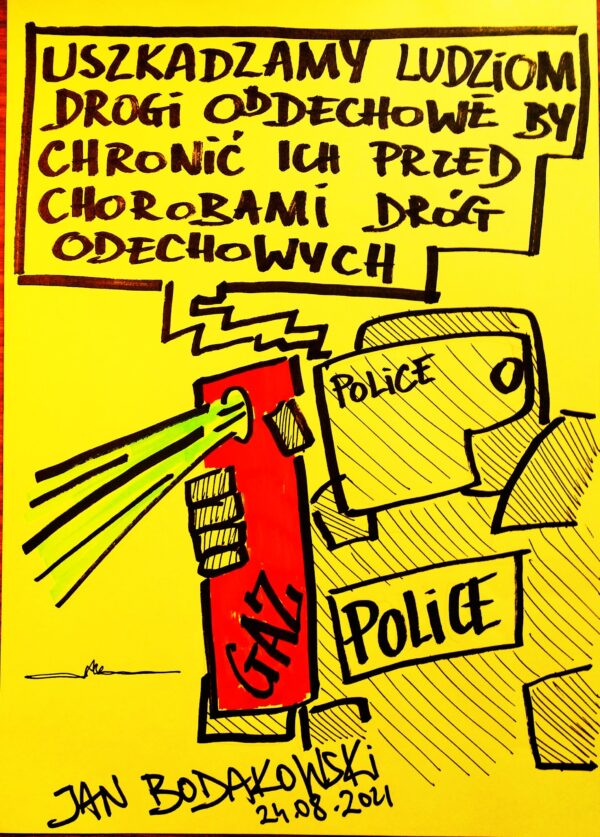 USZKADZAMY LUDZIOM
DROGI ODDECHOWE BY
CHRONIĆ ICH PRZED
CHOROBAMI DRÓG
ODECHOWYCH
POLICE
GAZ
POLICE
JAN BODAKOWSKI
24.08.2021